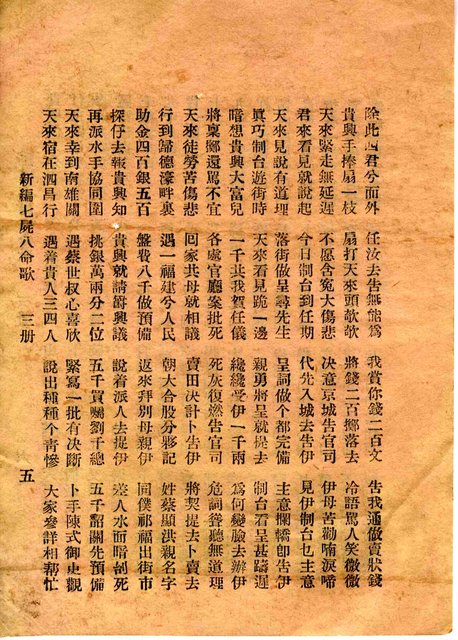 除此四君兮而外 任汝去告無能為 我賞你錢二百文 告我通做賣狀錢
貴興手捧扇一枝 扇打天來頭欹欹 將錢二百擲落去 冷語罵人笑微微
天來緊走無延遲 不愿含冤大傷悲 決意京城告官司 伊母苦勸喃淚啼
君來看見就說起 今日制台到任期 代先入城去告伊 見伊制台乜主意
天來見說有道理 落街做呈尋先生 呈詞做个都完備 主意攔轎卽告伊
眞巧制台遊街時 天來看見跪一邊 親勇將呈就提去 制台看呈甚躊遲
暗想貴興大富兒 一千共我賀任儀 纔纔受伊一千兩 為何變臉去辦伊
將稟擲還罵不宜 各處官廳案批死 死灰復燃告官司 危詞聳聽無道理
天來徒勞苦傷悲 回家共母就相議 賣田決計卜告伊 將契提去卜賣去
行到歸德濠畔裏 遇一福建兮人民 朝大合股分夥記 姓蔡顯洪親名字
助金四百銀五百 盤費八千做預備 返來拜別母親伊 同僕祁福出街市
探仔去報貴興知 貴興就請爵興議 說着派人去捉伊 人水面暗刣死
再派水手協同圍 挑銀萬兩分二位 五千買囑劉千總 五千韶關先預備
天來幸到南雄關 遇蔡世叔心喜欣 緊寫一批有決斷 卜手陳式御史觀
天來宿在泗昌行 遇着貴人三四人 說出種種个害慘 大家參詳相幇忙
新編七屍八命歌 三册 五